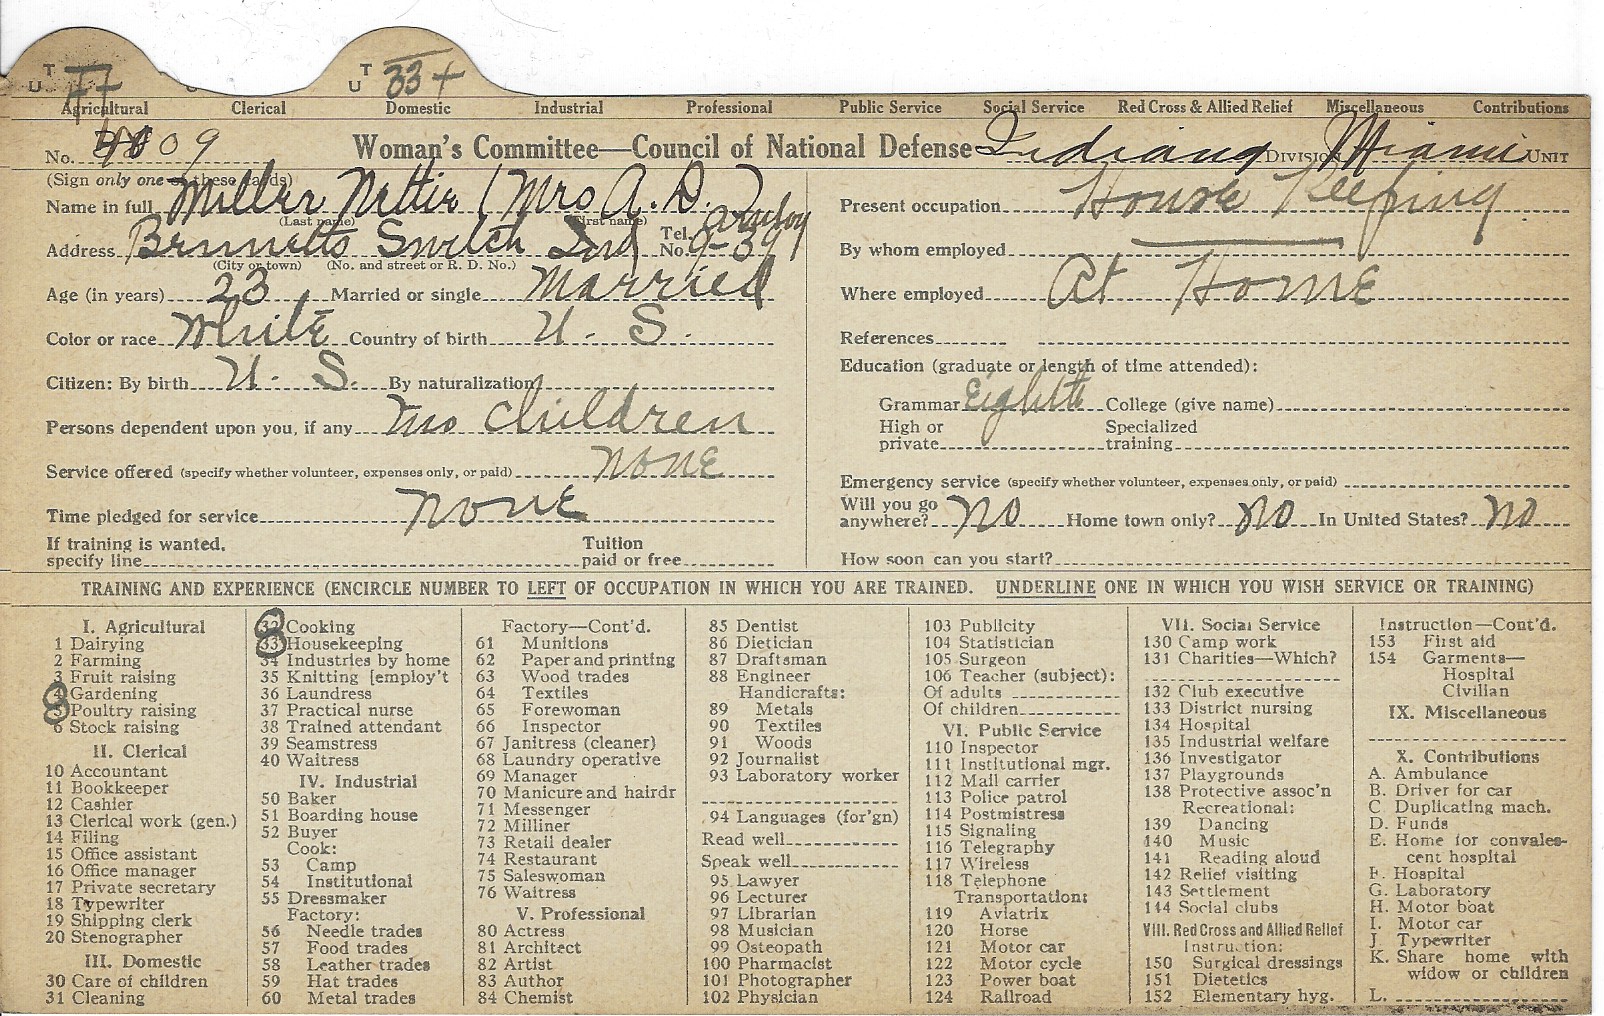 T
U
T
U 33 +
Agricultural Clerical Domestic Industrial Professional Public Service Social Service Red Cross & Allied Relief Miscellaneous Contributions
No. 09 Woman's Committee—Council of National Defense Indiana DIVISION Miami UNIT
(Sign only one of these cards)
Name in full Miller Nettie (Mrs A. D.)
(Last name) (First name)
Address Bennetts Switch Ind Tel. No. 9-39
(City or town) (No. and street or R. D. No.)
Age (in years) 23 Married or single Married
Color or race White Country of birth U. S.
Citizen: By birth U. S. By naturalization
Persons dependent upon you, if any Two children
Service offered (specify whether volunteer, expenses only, or paid) None
Time pledged for service None
If training is wanted, specify line Tuition paid or free
Present occupation House Keeping
By whom employed
Where employed At Home
References
Education (graduate or length of time attended):
Grammar Eighth College (give name)
High or private Specialized training
Emergency service (specify whether volunteer, expenses only, or paid)
Will you go anywhere? No Home town only? No In United States? No
How soon can you start?
TRAINING AND EXPERIENCE (ENCIRCLE NUMBER TO LEFT OF OCCUPATION IN WHICH YOU ARE TRAINED. UNDERLINE ONE IN WHICH YOU WISH SERVICE OR TRAINING)
I. Agricultural
1 Dairying
2 Farming
3 Fruit raising
4 Gardening
5 Poultry raising
6 Stock raising
II. Clerical
10 Accountant
11 Bookkeeper
12 Cashier
13 Clerical work (gen.)
14 Filing
15 Office assistant
16 Office manager
17 Private secretary
18 Typewriter
19 Shipping clerk
20 Stenographer
III. Domestic
30 Care of children
31 Cleaning
32 Cooking
33 Housekeeping
34 Industries by home
35 Knitting [employ't
36 Laundress
37 Practical nurse
38 Trained attendant
39 Seamstress
40 Waitress
IV. Industrial
50 Baker
51 Boarding house
52 Buyer
Cook:
53 Camp
54 Institutional
55 Dressmaker
Factory:
56 Needle trades
57 Food trades
58 Leather trades
59 Hat trades
60 Metal trades
Factory—Cont'd.
61 Munitions
62 Paper and printing
63 Wood trades
64 Textiles
65 Forewoman
66 Inspector
67 Janitress (cleaner)
68 Laundry operative
69 Manager
70 Manicure and hairdr
71 Messenger
72 Milliner
73 Retail dealer
74 Restaurant
75 Saleswoman
76 Waitress
V. Professional
80 Actress
81 Architect
82 Artist
83 Author
84 Chemist
85 Dentist
86 Dietician
87 Draftsman
88 Engineer
Handicrafts:
89 Metals
90 Textiles
91 Woods
92 Journalist
93 Laboratory worker
94 Languages (for'gn)
Read well
Speak well
95 Lawyer
96 Lecturer
97 Librarian
98 Musician
99 Osteopath
100 Pharmacist
101 Photographer
102 Physician
103 Publicity
104 Statistician
105 Surgeon
106 Teacher (subject):
Of adults
Of children
VI. Public Service
110 Inspector
111 Institutional mgr.
112 Mail carrier
113 Police patrol
114 Postmistress
115 Signaling
116 Telegraphy
117 Wireless
118 Telephone
Transportation:
119 Aviatrix
120 Horse
121 Motor car
122 Motor cycle
123 Power boat
124 Railroad
VII. Social Service
130 Camp work
131 Charities—Which?
132 Club executive
133 District nursing
134 Hospital
135 Industrial welfare
136 Investigator
137 Playgrounds
138 Protective assoc'n
Recreational:
139 Dancing
140 Music
141 Reading aloud
142 Relief visiting
143 Settlement
144 Social clubs
VIII. Red Cross and Allied Relief
Instruction:
150 Surgical dressings
151 Dietetics
152 Elementary hyg.
Instruction—Cont'd.
153 First aid
154 Garments—
Hospital
Civilian
IX. Miscellaneous
X. Contributions
A. Ambulance
B. Driver for car
C. Duplicating mach.
D. Funds
E. Home for convales-
cent hospital
F. Hospital
G. Laboratory
H. Motor boat
I. Motor car
J. Typewriter
K. Share home with
widow or children
L.